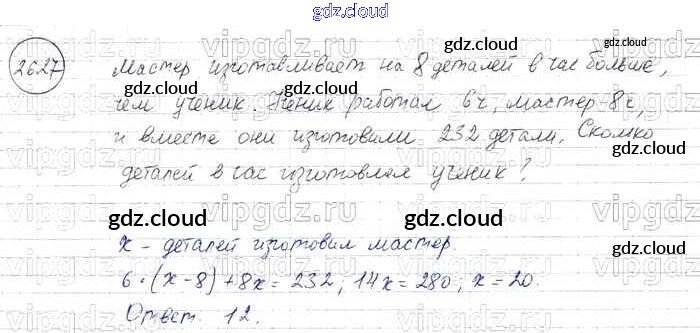 gdz.cloud
gdz.cloud gdz.cloud
2627 Мастер изготавливает на 8 деталей в час больше,
чем ученик. Ученик работал 6ч, мастер-8ч,
и вместе они изготовили 232 детали. Сколко
деталей в час изготовлял ученик?
gdz.cloud gdz.cloud gdz.cloud
x - деталей изготовил мастер.
6·(x-8)+8x=232, 14x=280, x=20.
Ответ. 12.
gdz.cloud gdz.cloud
vipgdz.ru